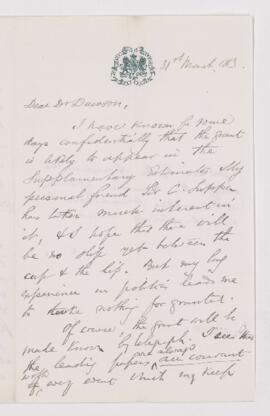 31st March, 83.
Dear Dr Dawson,
I have known for some
days confidentially that the grant
is likely to appear in the
Supplementary Estimates. My
personal friend Sir C. Tupper
has taken much interest in
it, & I hope that there will
be no slip yet between the
cup & the lip. But my long
experience in politics leads me
to take nothing for granted.
Of course, the grant will be
made known by telegraph. I see that
the leading papers are always au courant
with every event which may keep